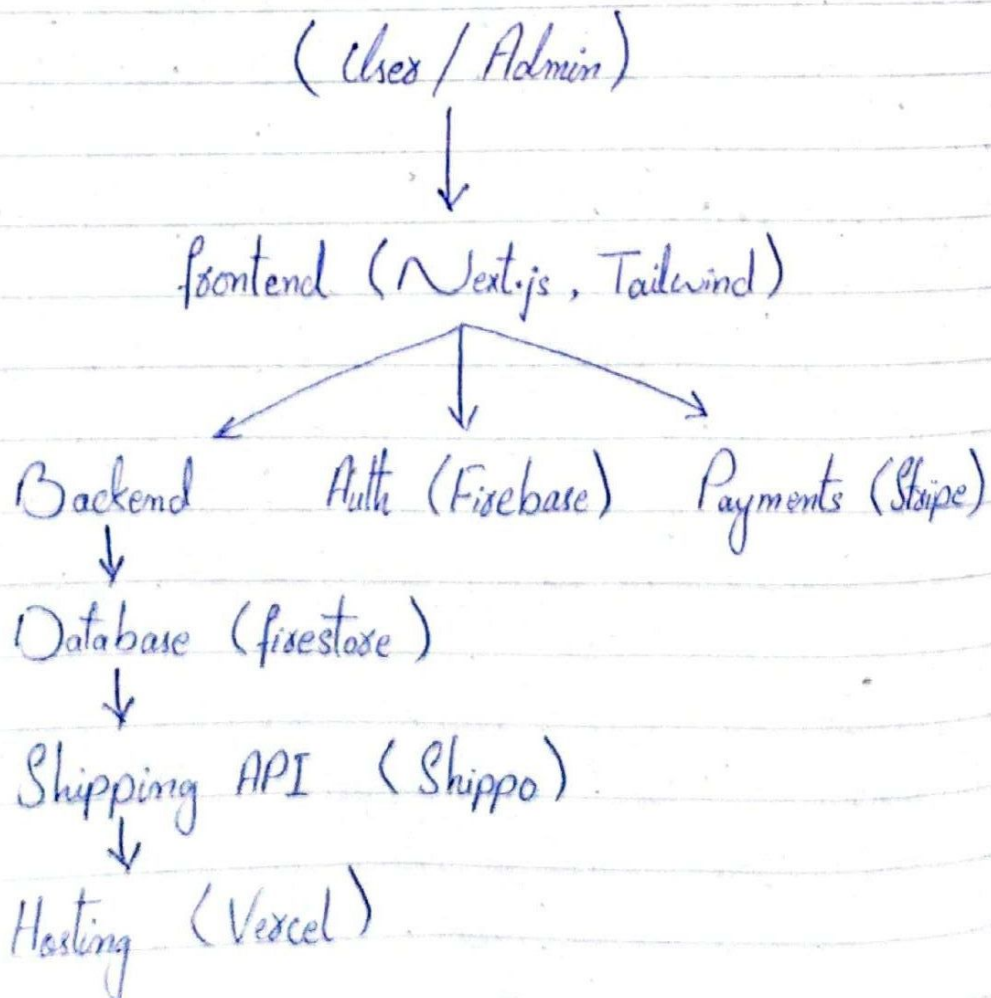 (User / Admin)
frontend (Next.js, Tailwind)
Backend Auth (Firebase) Payments (Stripe)
Database (firestore)
Shipping API (Shippo)
Hosting (Vercel)